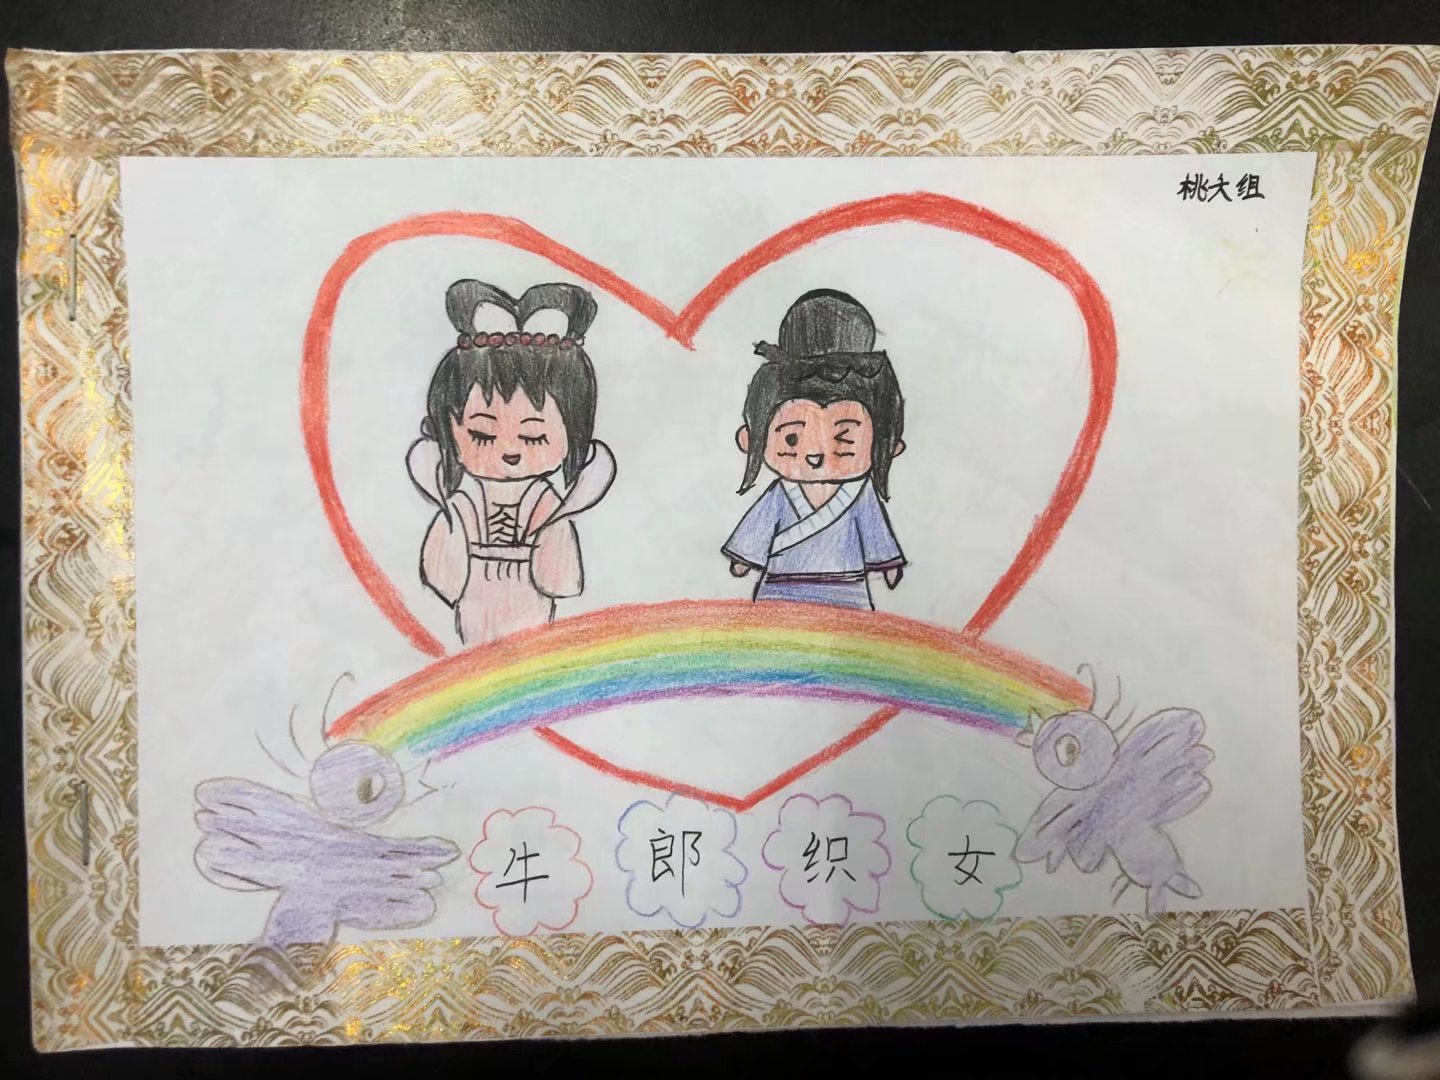 桃夭组
牛郎织女